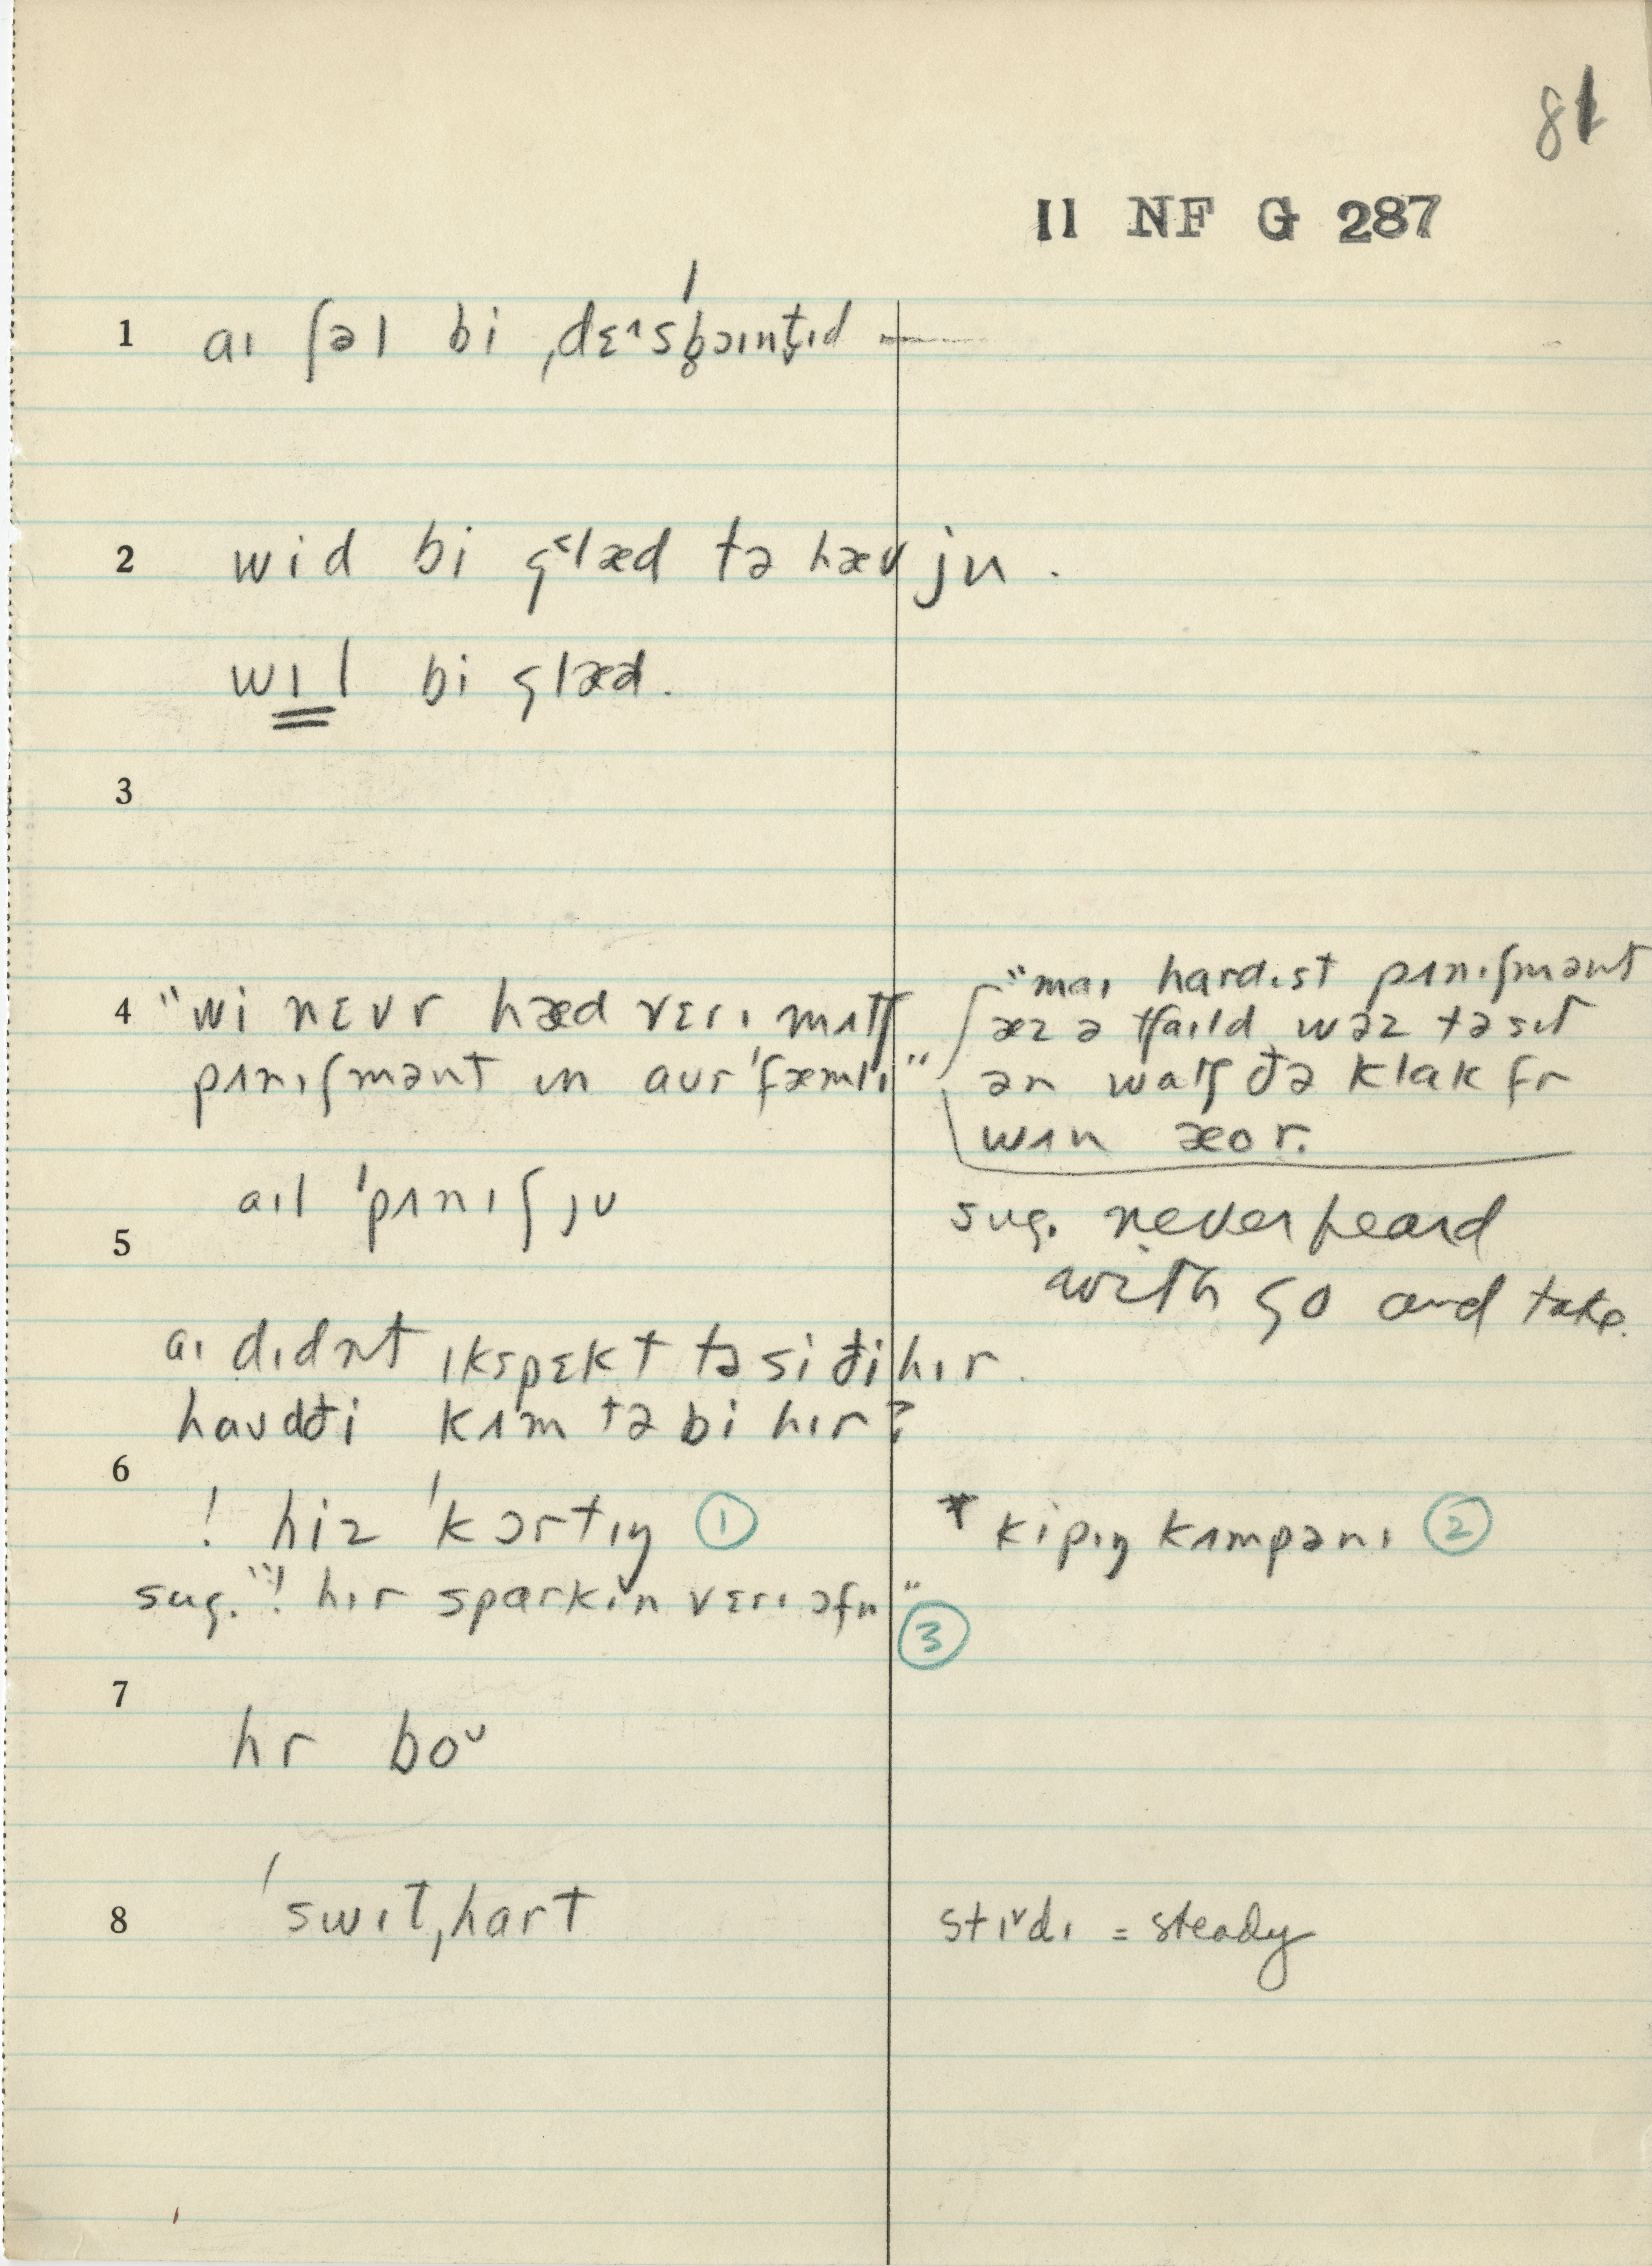 81
II NF G 287
1 aɪ ʃəl bi ˌdɛɪsˈb̥ɔɪnt̬ɪd —
2 wid bi g˂læd tə hæv ju .
wɪl bi glæd.
3
4 "wi nɛvr hæd vɛrɪ mʌtʃ
pʌnɪʃmənt ɪn aʊr ˈfæmlɪ"
"maɪ hardɪst pʌnɪʃmənt
æz ə tʃaɪld wəz tə sɪt
ən watʃ ðə klak fr
wʌn æor.
aɪl ˈpʌnɪʃ jʊ
5
sug. never heard
with go and take.
aɪ dɪdnt ɪkspɛkt tə si ði hɪr.
haʊd ði kʌm tə bi hɪr?
6
! hiz ˈkɔrtɪŋ ①
* kipɪŋ kʌmpənɪ ②
sug. "! hɪr sparkɪn vɛrɪ ɔfn" ③
7
hr boᵛ
8 ˈswitˌhart
stɪᵛdɪ = steady